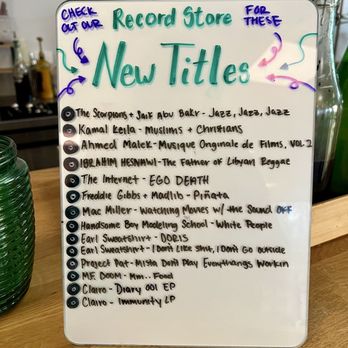 CHECK OUT OUR
Record Store
FOR THESE
New Titles
The Scorpions + Saif Abu Bakr - Jazz, Jazz, Jazz
Kamal Keila - Muslims + Christians
Ahmed Malek - Musique Originale de Films, VOL 2
IBRAHIM HESNAWI - The Father of Libyan Reggae
The Internet - EGO DEATH
Freddie Gibbs + Madlib - Piñata
Mac Miller - Watching Movies w/ the Sound OFF
Handsome Boy Modeling School - White People
Earl Sweatshirt - DORIS
Earl Sweatshirt - I Don't Like Shit, I Don't Go Outside
Project Pat - Mista Don't Play Everythangs Workin
M.F. DOOM - Mm.. Food
Clairo - Diary 001 EP
Clairo - Immunity LP